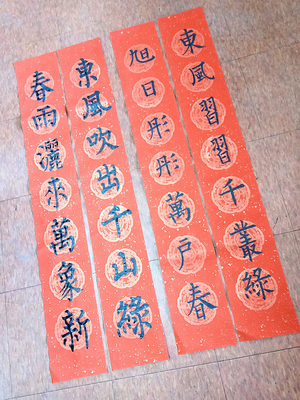 東風習習千叢綠
旭日彤彤萬戶春
東風吹出千山綠
春雨灑來萬象新